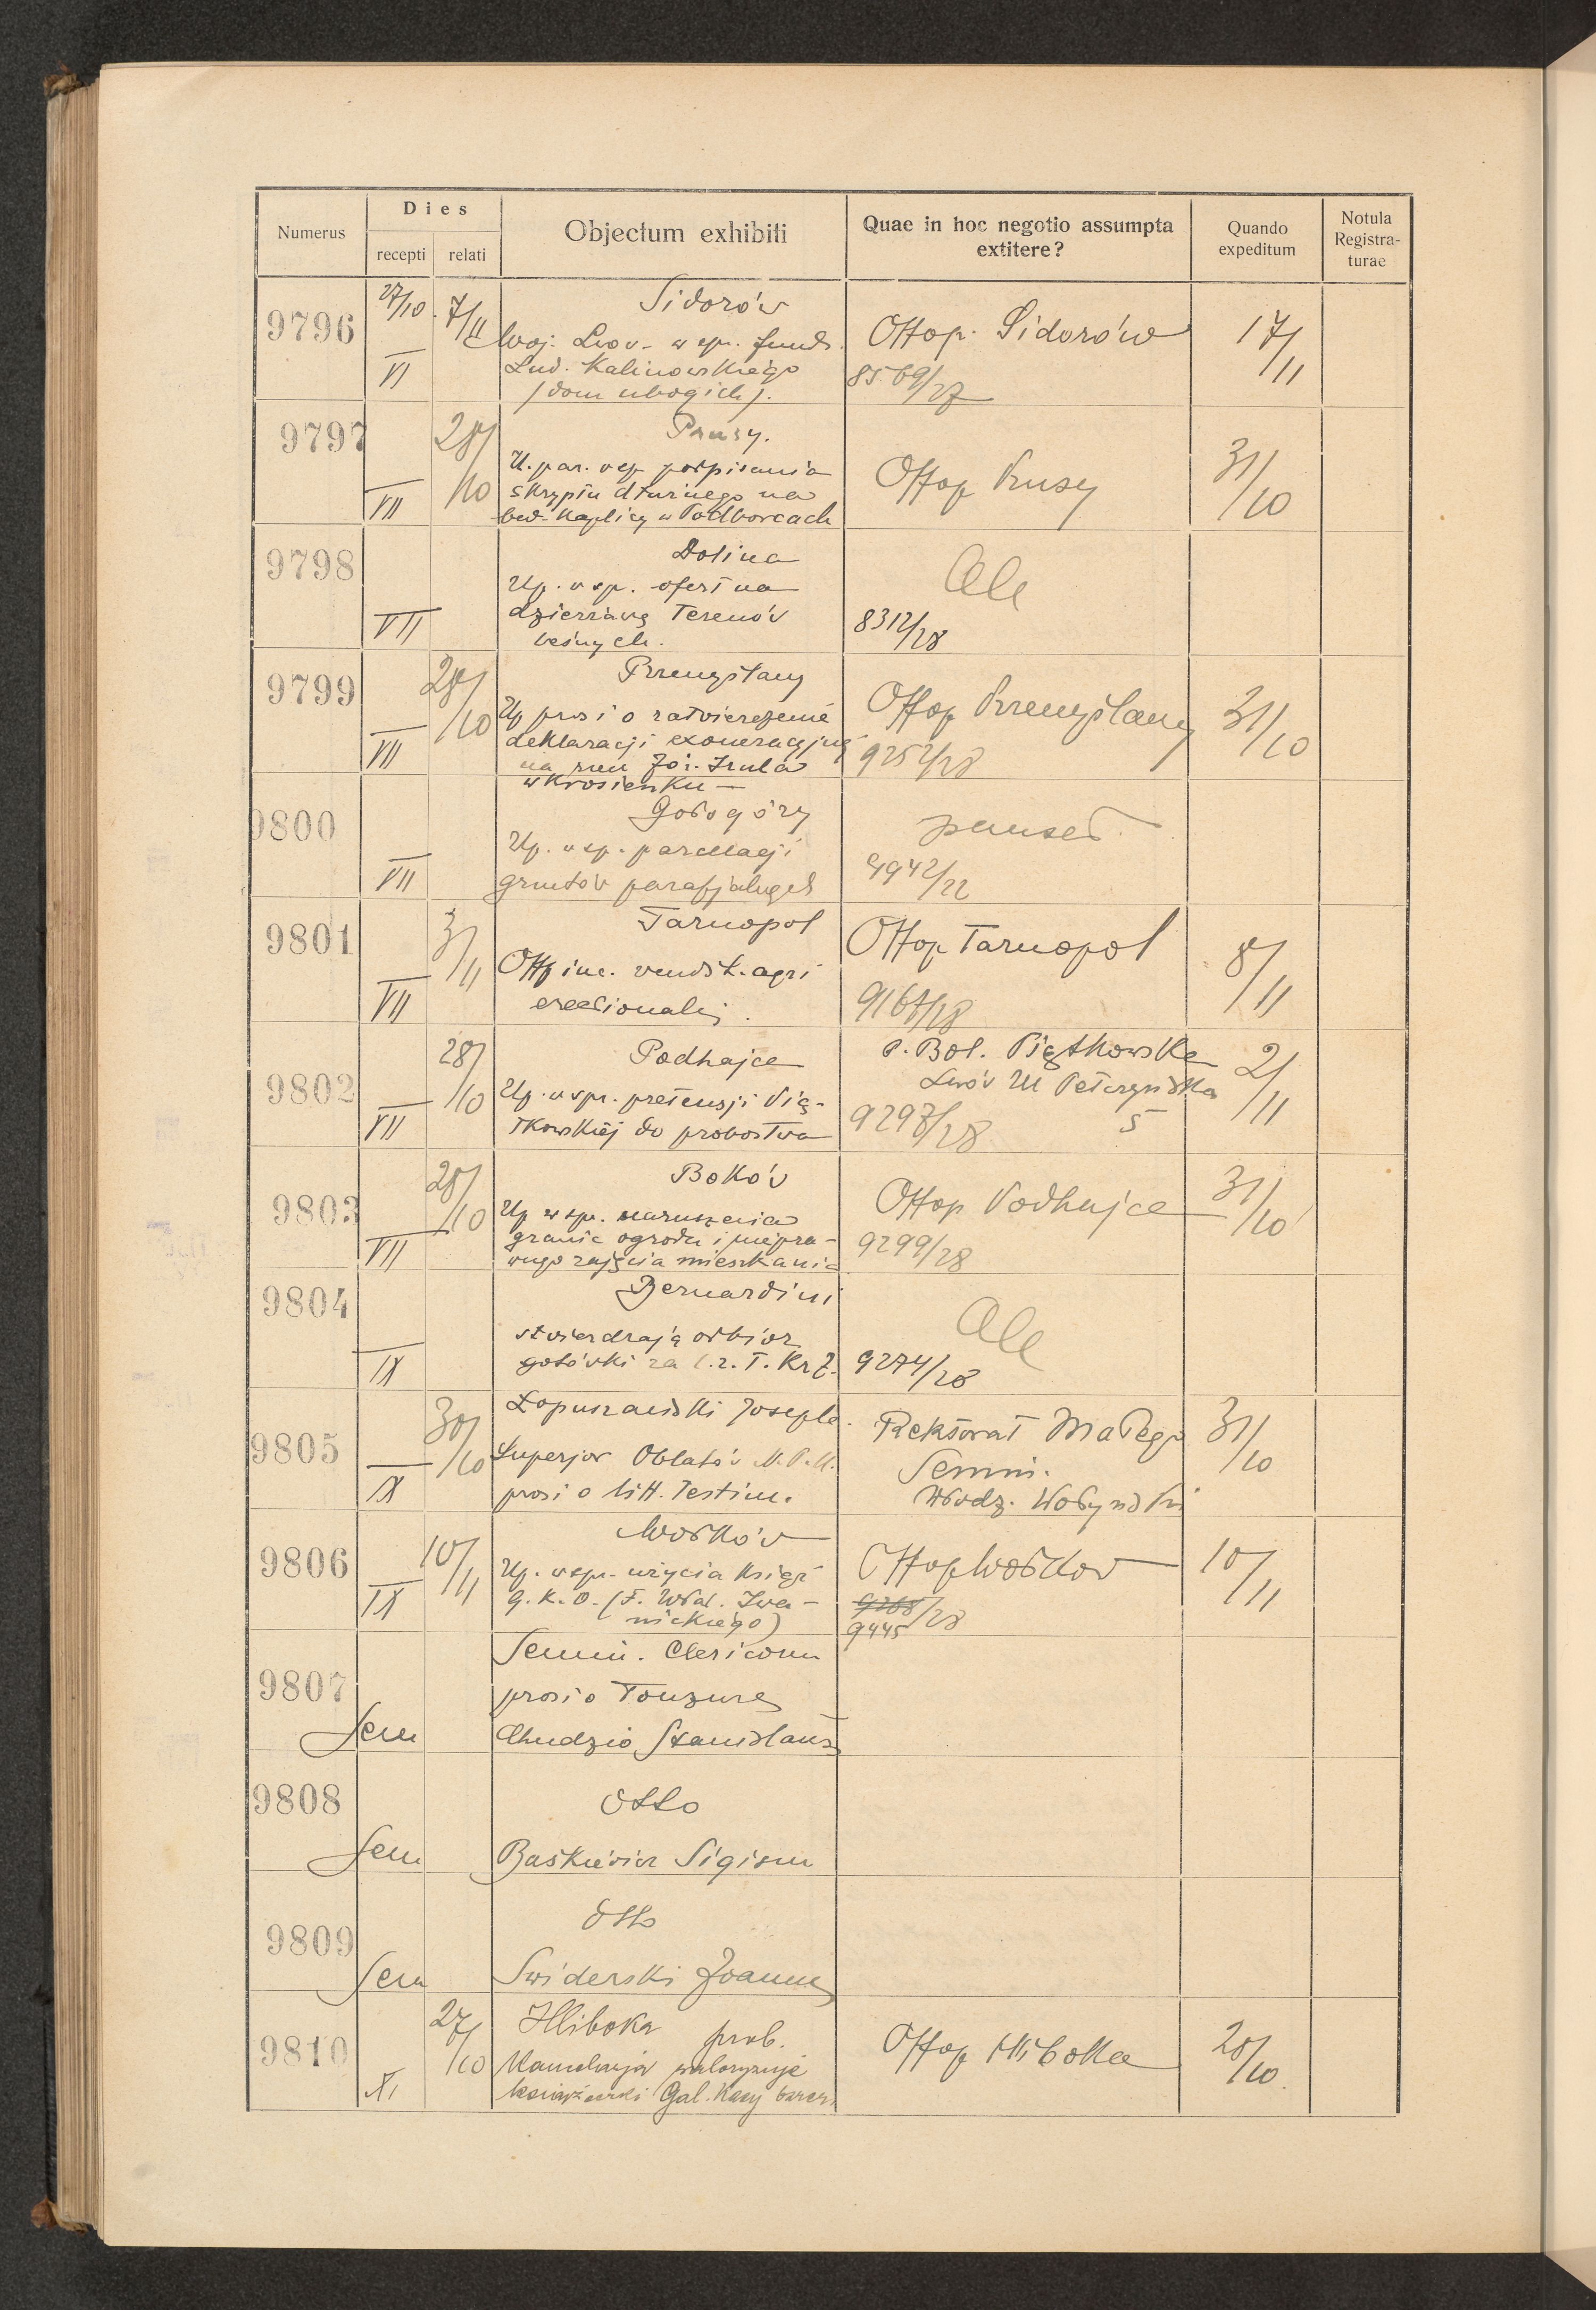 Numerus
Dies
recepti
relati
Objectum exhibiti
Quae in hoc negotio assumpta
extitere?
Quando
expeditum
Notula
Registra-
turae
9796
27/10
7/11
VI
Sidorów
Woj. Lwow- w spr. fund.
Lud. Kalinowskiego
/dom ubogich/.
Offop. Sidorów
8569/27
17/11
9797
28/10
VII
Prusy.
U. par. w sp podpisania
skryptu dłużnego na
bud. Kaplicy w Podborcach
Offop Prusy
31/10
9798
VII
Dolina
Up. w sp. ofert na
dzierżawę Terenów
leśnych.
Ale
8312/28
9799
28/10
VII
Przemyślany
Up prosi o zatwierdzenie
deklaracji exoneracyjnej
w Krosienku
Offop Przemyślany
9252/28
31/10
9800
VII
Gołogóry
Up. w sp. parcelacji
gruntów parafjalnych
4942/22
9801
3/11
VII
Tarnopol
Offp inc. vendit. agri
erectionalis.
Offop Tarnopol
9167/28
8/11
9802
28/10
VII
Podhajce
Up. w spr. pretensji Pią-
tkowskiej do probostwa
P. Bol. Piątkowska
Lwów Ul Pełczyńska
5
9297/28
2/11
9803
28/10
VII
Boków
Up w spr. naruszenia
granic ogrodu i niepra-
wnego zajęcia mieszkania
Offop Podhajce
9299/28
31/10
9804
IX
Bernardini
stwierdzają odbiór
gotówki za
Ale
9274/28
9805
30/10
IX
Łopuszański Joseph.
Superjor Oblatów N.P.M.
prosi o litt. Testim.
Rektorat Małego
Semin.
Włodz. Wołyński
31/10
9806
10/11
IX
Wołków
Up. w spr. użycia Książ
G. K. O. (F. Wład. Iwa-
nickiego)
Offop Wołków
9268/28
9445
10/11
9807
Sem
Semin. Clericorum
prosi o Tonzurę
Chudzio Stanislaus
9808
Sem
dtto
Baśkiewicz Sigism
9809
Sem
dtto
Swiderski Joannes
9810
27/10
XI
Hliboka prob.
Mamolazja waloryzuje
książeczki Gal. Kasy oszcz.
Offop Hliboka
28/10.